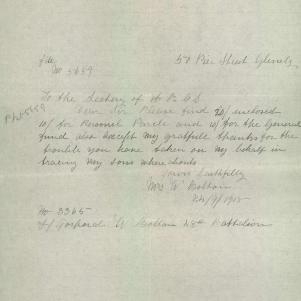 file
No 5659
57 Pier Street Glenelg
To the Secretary of A R C S
Dear Sir Please find 20/ enclosed
10/ for Personel Parcle and 10/ for the General
fund also accept my gratfull thanks for the
trouble you have taken on my behalf in
tracing my sons where abouts
yours faithfully
Mrs W Bottom
24/9/1918
No 3365
L/ Corporal W Bottom 48th Battalion